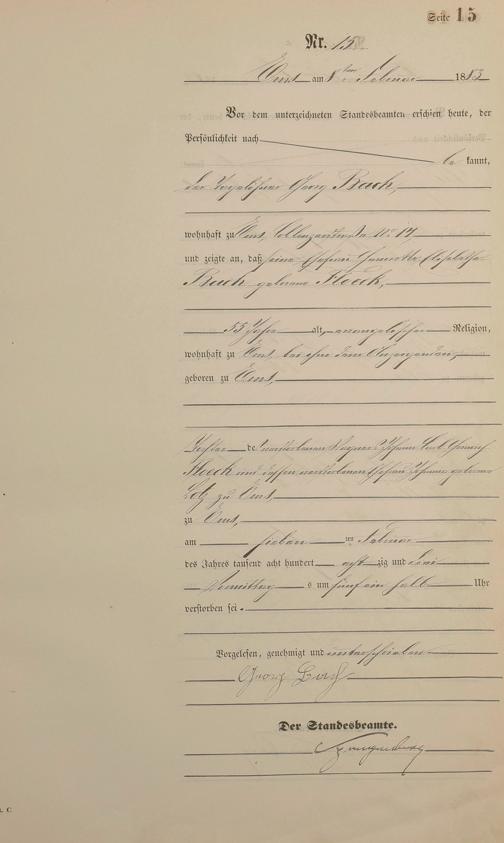 Seite 15
Nr. 15
Ems am 8ten Februar 1883
Vor dem unterzeichneten Standesbeamten erschien heute, der
Persönlichkeit nach
be kannt,
der Georg Bach,
wohnhaft zu Ems, No 17
und zeigte an, daß seine Ehefrau Elisabetha
Bach geborene Fleck,
55 Jahre alt, evangelischer Religion,
wohnhaft zu Ems, bei ihm dem Anzeigenden,
geboren zu Ems,
Tochter des verstorbenen Johann
Fleck und dessen verstorbenen Ehefrau geborene
Lotz zu Ems,
zu Ems,
am sieben ten Februar
des Jahres tausend acht hundert acht zig und drei
Vormittag s um fünf ein halb Uhr
verstorben sei.
Vorgelesen, genehmigt und unterschrieben
Georg Bach
Der Standesbeamte.